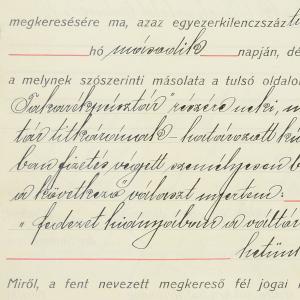 megkeresésére ma, azaz egyezerkilenczszáz
hó második napján, dé
a melynek szószerinti másolata a tulsó oldalo
Takarékpénztár" részére neki, m
tár titkárának – határozott kü
ban fizetés végett személyesen b
a következő választ nyertem:
" fedezet hiányában a váltó
hetün
Miről, a fent nevezett megkereső fél jogai